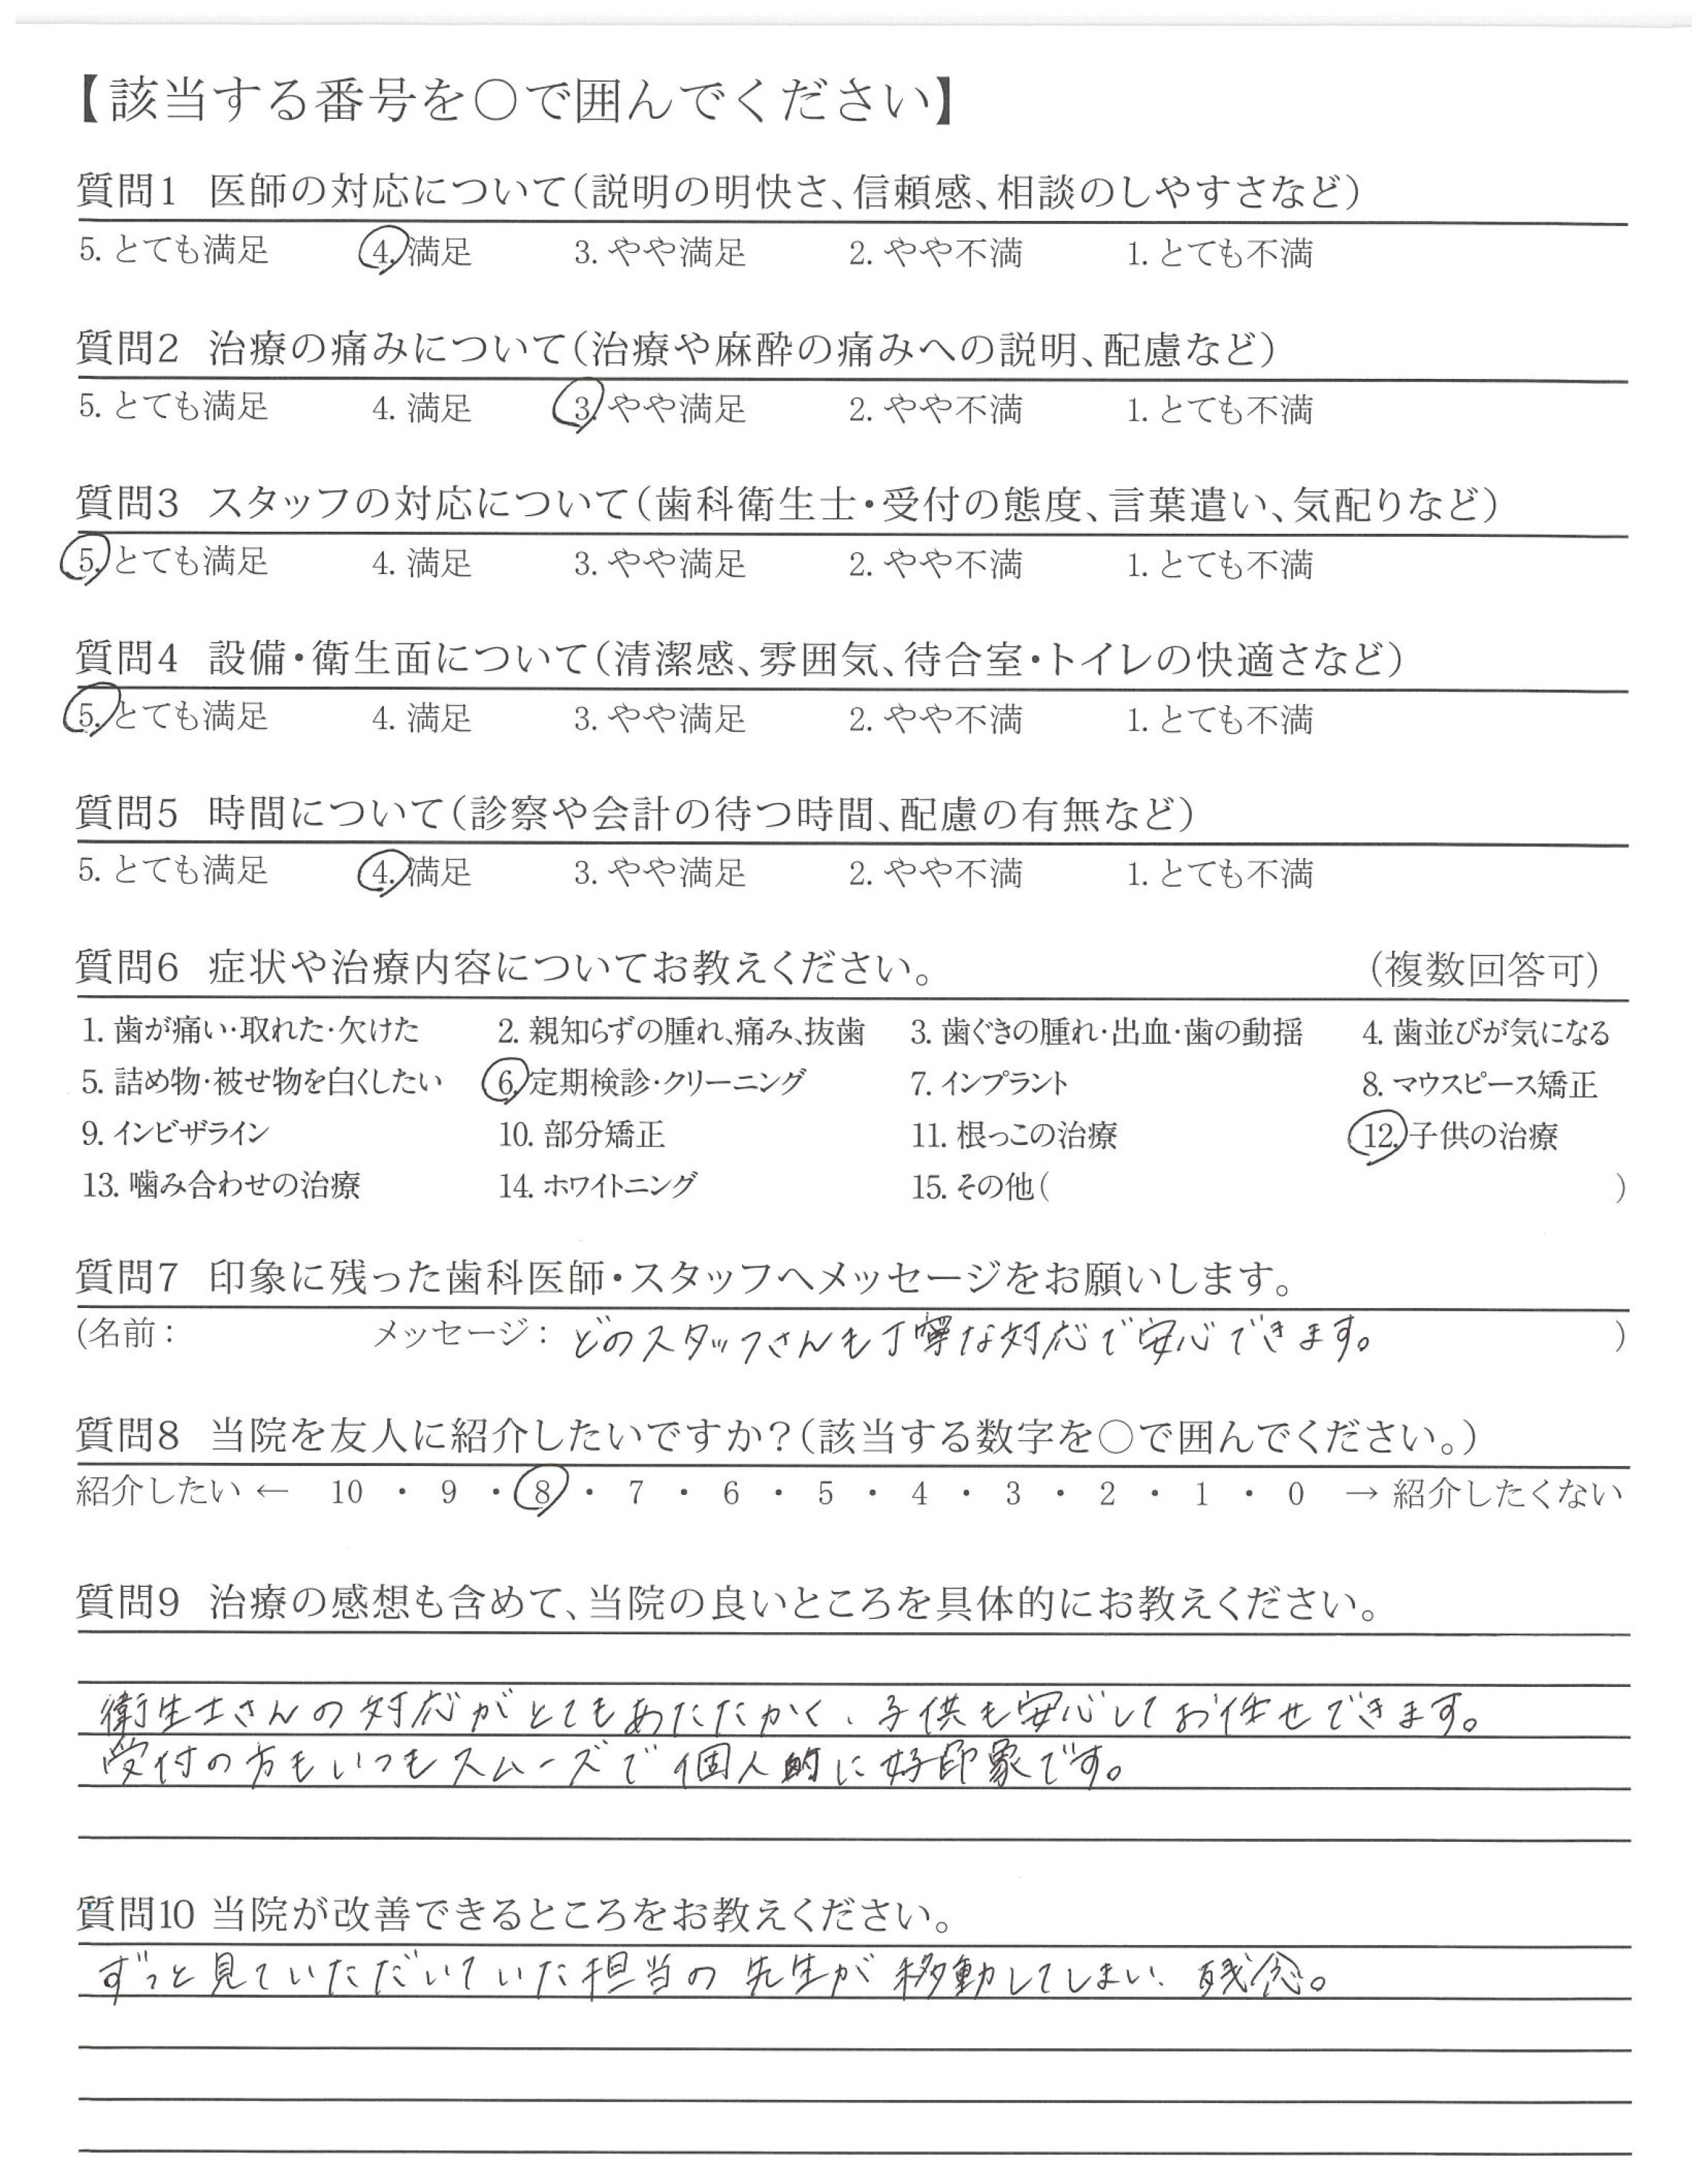 【該当する番号を○で囲んでください】
質問1 医師の対応について(説明の明快さ、信頼感、相談のしやすさなど)
5. とても満足 4. 満足 3. やや満足 2. やや不満 1. とても不満
質問2 治療の痛みについて(治療や麻酔の痛みへの説明、配慮など)
5. とても満足 4. 満足 3. やや満足 2. やや不満 1. とても不満
質問3 スタッフの対応について(歯科衛生士・受付の態度、言葉遣い、気配りなど)
5. とても満足 4. 満足 3. やや満足 2. やや不満 1. とても不満
質問4 設備・衛生面について(清潔感、雰囲気、待合室・トイレの快適さなど)
5. とても満足 4. 満足 3. やや満足 2. やや不満 1. とても不満
質問5 時間について(診察や会計の待つ時間、配慮の有無など)
5. とても満足 4. 満足 3. やや満足 2. やや不満 1. とても不満
質問6 症状や治療内容についてお教えください。 (複数回答可)
1. 歯が痛い・取れた・欠けた 2. 親知らずの腫れ、痛み、抜歯 3. 歯ぐきの腫れ・出血・歯の動揺 4. 歯並びが気になる
5. 詰め物・被せ物を白くしたい 6. 定期検診・クリーニング 7. インプラント 8. マウスピース矯正
9. インビザライン 10. 部分矯正 11. 根っこの治療 12. 子供の治療
13. 噛み合わせの治療 14. ホワイトニング 15. その他( )
質問7 印象に残った歯科医師・スタッフへメッセージをお願いします。
(名前: メッセージ: どのスタッフさんも丁寧な対応で安心できます。 )
質問8 当院を友人に紹介したいですか?(該当する数字を○で囲んでください。)
紹介したい ← 10 ・ 9 ・ 8 ・ 7 ・ 6 ・ 5 ・ 4 ・ 3 ・ 2 ・ 1 ・ 0 → 紹介したくない
質問9 治療の感想も含めて、当院の良いところを具体的にお教えください。
衛生士さんの対応がとてもあたたかく、子供も安心してお任せできます。
受付の方もいつもスムーズで個人的に好印象です。
質問10 当院が改善できるところをお教えください。
ずっと見ていただいていた担当の先生が移動してしまい、残念。